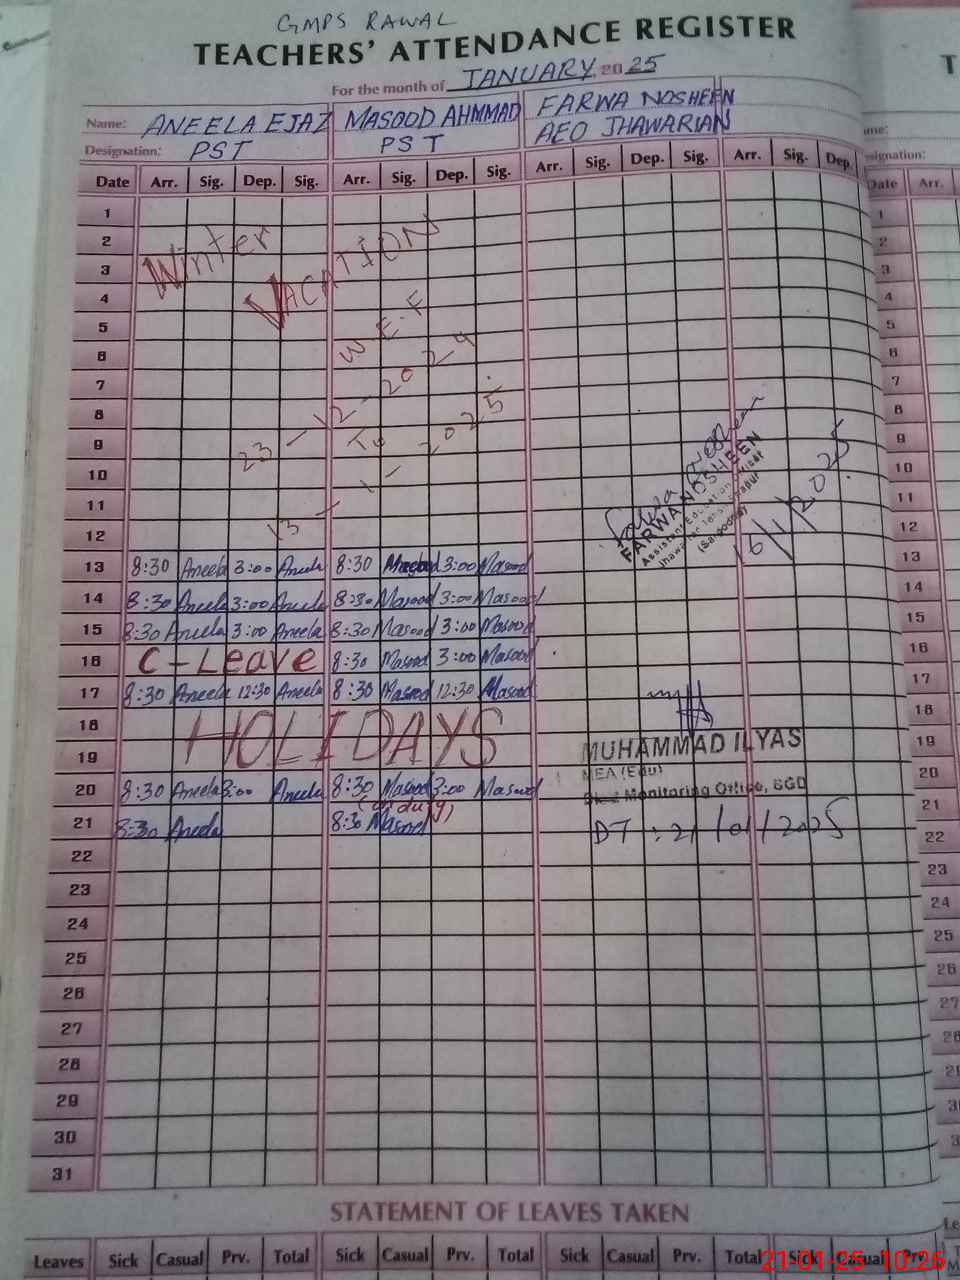 GMPS RAWAL
TEACHERS' ATTENDANCE REGISTER
For the month of JANUARY, 2025
Name: ANEELA EJAZ MASOOD AHMMAD FARWA NOSHEEN
Designation: PST PST AEO JHAWARIAN
Date Arr. Sig. Dep. Sig. Arr. Sig. Dep. Sig. Arr. Sig. Dep. Sig. Arr. Sig. Dep.
1
2
3
4
5
6
7
8
9
10
11
12
Winter VACATION
W.E.F
23-12-2024
To
13-1-2025.
Farwa Nosheen
FARWA NOSHEEN
Assistant Education Officer
(Sargodha)
16/1/2025
13 8:30 Aneela 3:00 Aneela 8:30 Masood 3:00 Masood
14 8:30 Aneela 3:00 Aneela 8:30 Masood 3:00 Masood
15 8:30 Aneela 3:00 Aneela 8:30 Masood 3:00 Masood
16 C-Leave 8:30 Masood 3:00 Masood
17 8:30 Aneela 12:30 Aneela 8:30 Masood 12:30 Masood
18 HOLIDAYS
19
MUHAMMAD ILYAS
MEA (Edu)
Monitoring Office, SGD
DT: 21/01/2025
20 8:30 Aneela 3:00 Aneela 8:30 Masood 3:00 Masood
(on duty)
21 8:30 Aneela 8:30 Masood
22
23
24
25
26
27
28
29
30
31
STATEMENT OF LEAVES TAKEN
Leaves Sick Casual Prv. Total Sick Casual Prv. Total Sick Casual Prv. Total Sick Casual Prv
21-01-25 10:26